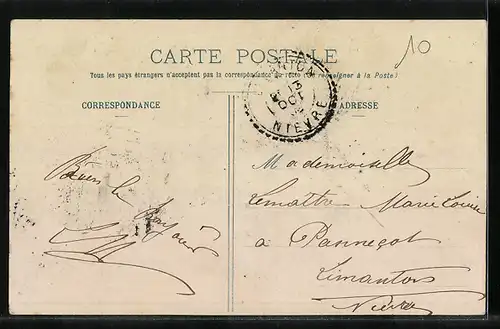 10
CARTE POSTALE
Tous les pays étrangers n'acceptent pas la correspondance au recto (Se renseigner à la Poste)
CORRESPONDANCE
ADRESSE
OCT
NIEVRE
Bien le
bonjour
Mademoiselle
Lemaître Marie Louise
a Panneçot
Limanton
Nièvre